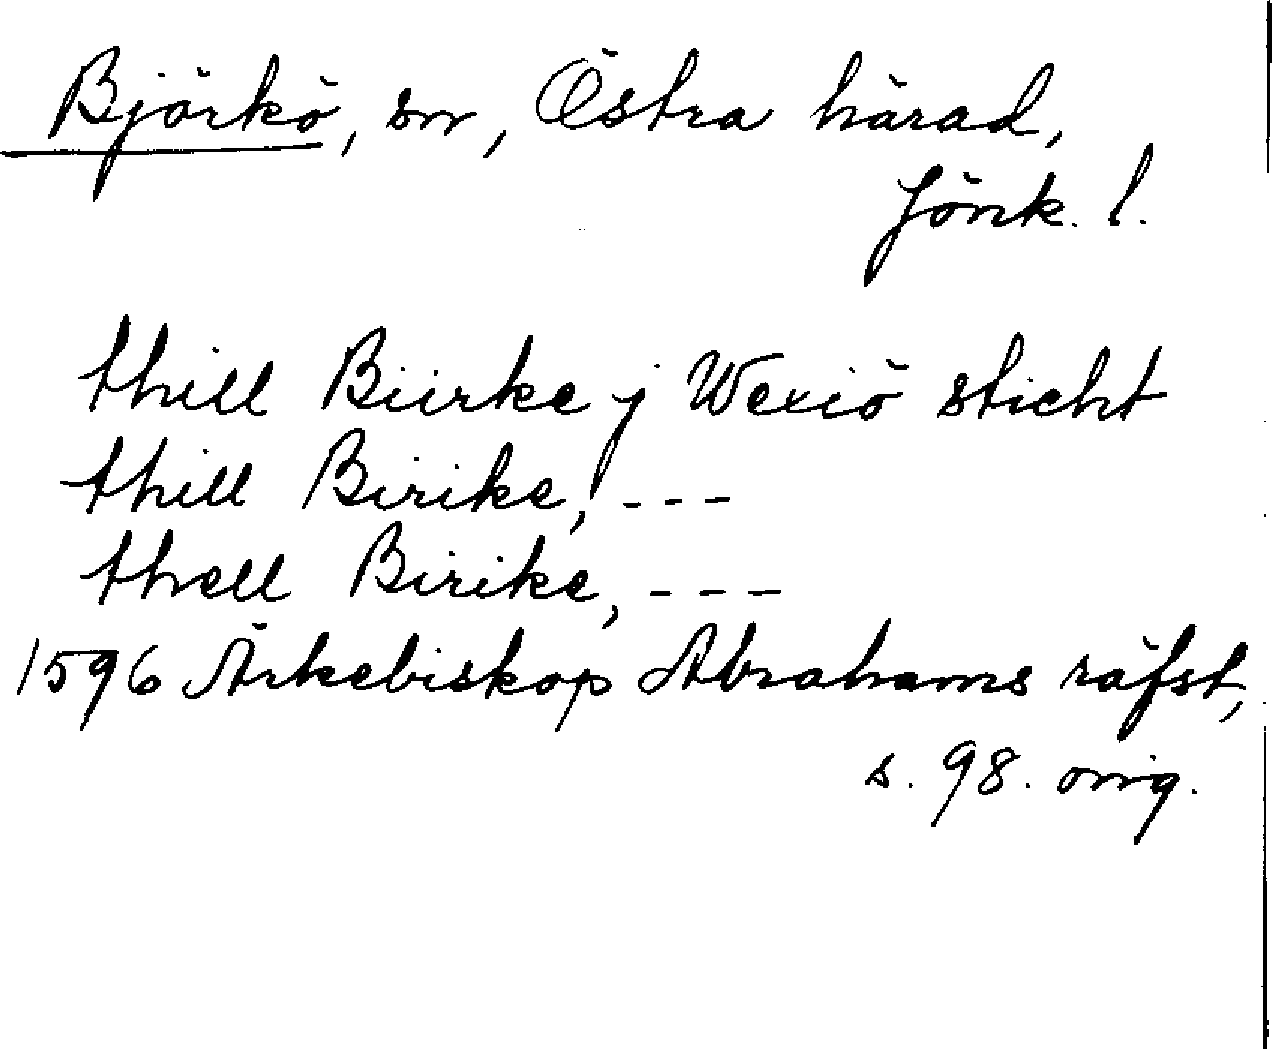 Björkö, sn, Östra härad,
Jönk. l.
thill Biirke j Wexiö sticht
thill Birike, ---
thell Birike, ---
1596 Ärkebiskop Abrahams räfst,
s. 98. orig.